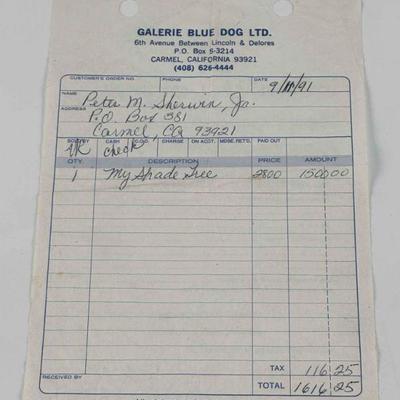 GALERIE BLUE DOG LTD.
6th Avenue Between Lincoln & Delores
P.O. Box S-3214
CARMEL, CALIFORNIA 93921
(408) 626-4444
CUSTOMER'S ORDER NO. PHONE DATE 9/ /91
NAME Peter M. Sherwin, Jr.
ADDRESS P.O. Box 581
Carmel, CA 93921
SOLD BY CASH C.O.D. CHARGE ON ACCT. MDSE. RET'D. PAID OUT
check
QTY. DESCRIPTION PRICE AMOUNT
1 My Shade Tree 2800 1500.00
TAX 116 25
RECEIVED BY TOTAL 1616 25